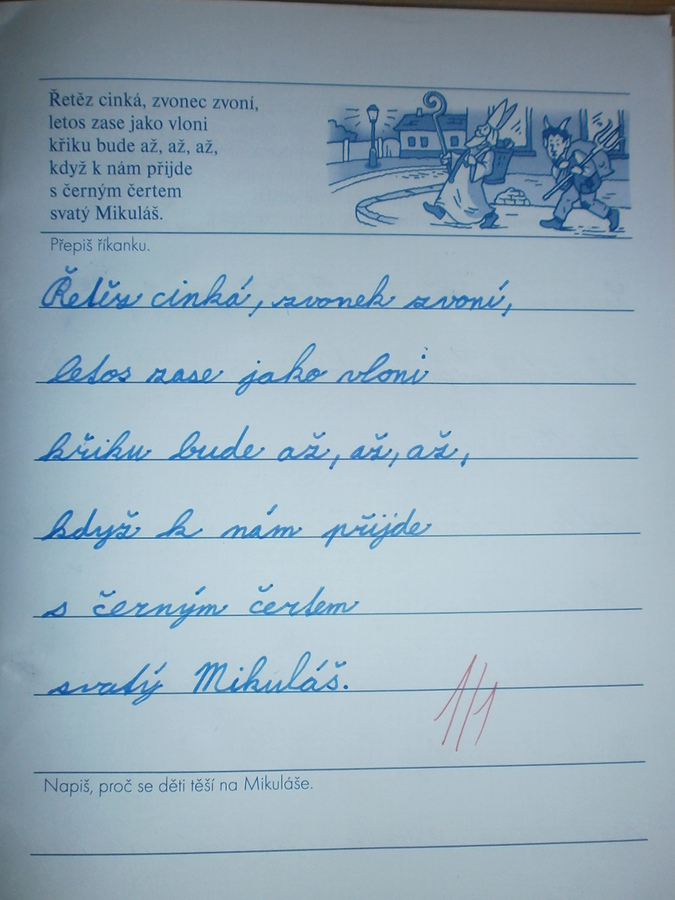 Řetěz cinká, zvonec zvoní,
letos zase jako vloni
křiku bude až, až, až,
když k nám přijde
s černým čertem
svatý Mikuláš.
Přepiš říkanku.
Řetěz cinká, zvonek zvoní,
letos zase jako vloni
křiku bude až, až, až,
když k nám přijde
s černým čertem
svatý Mikuláš.
1/1
Napiš, proč se děti těší na Mikuláše.